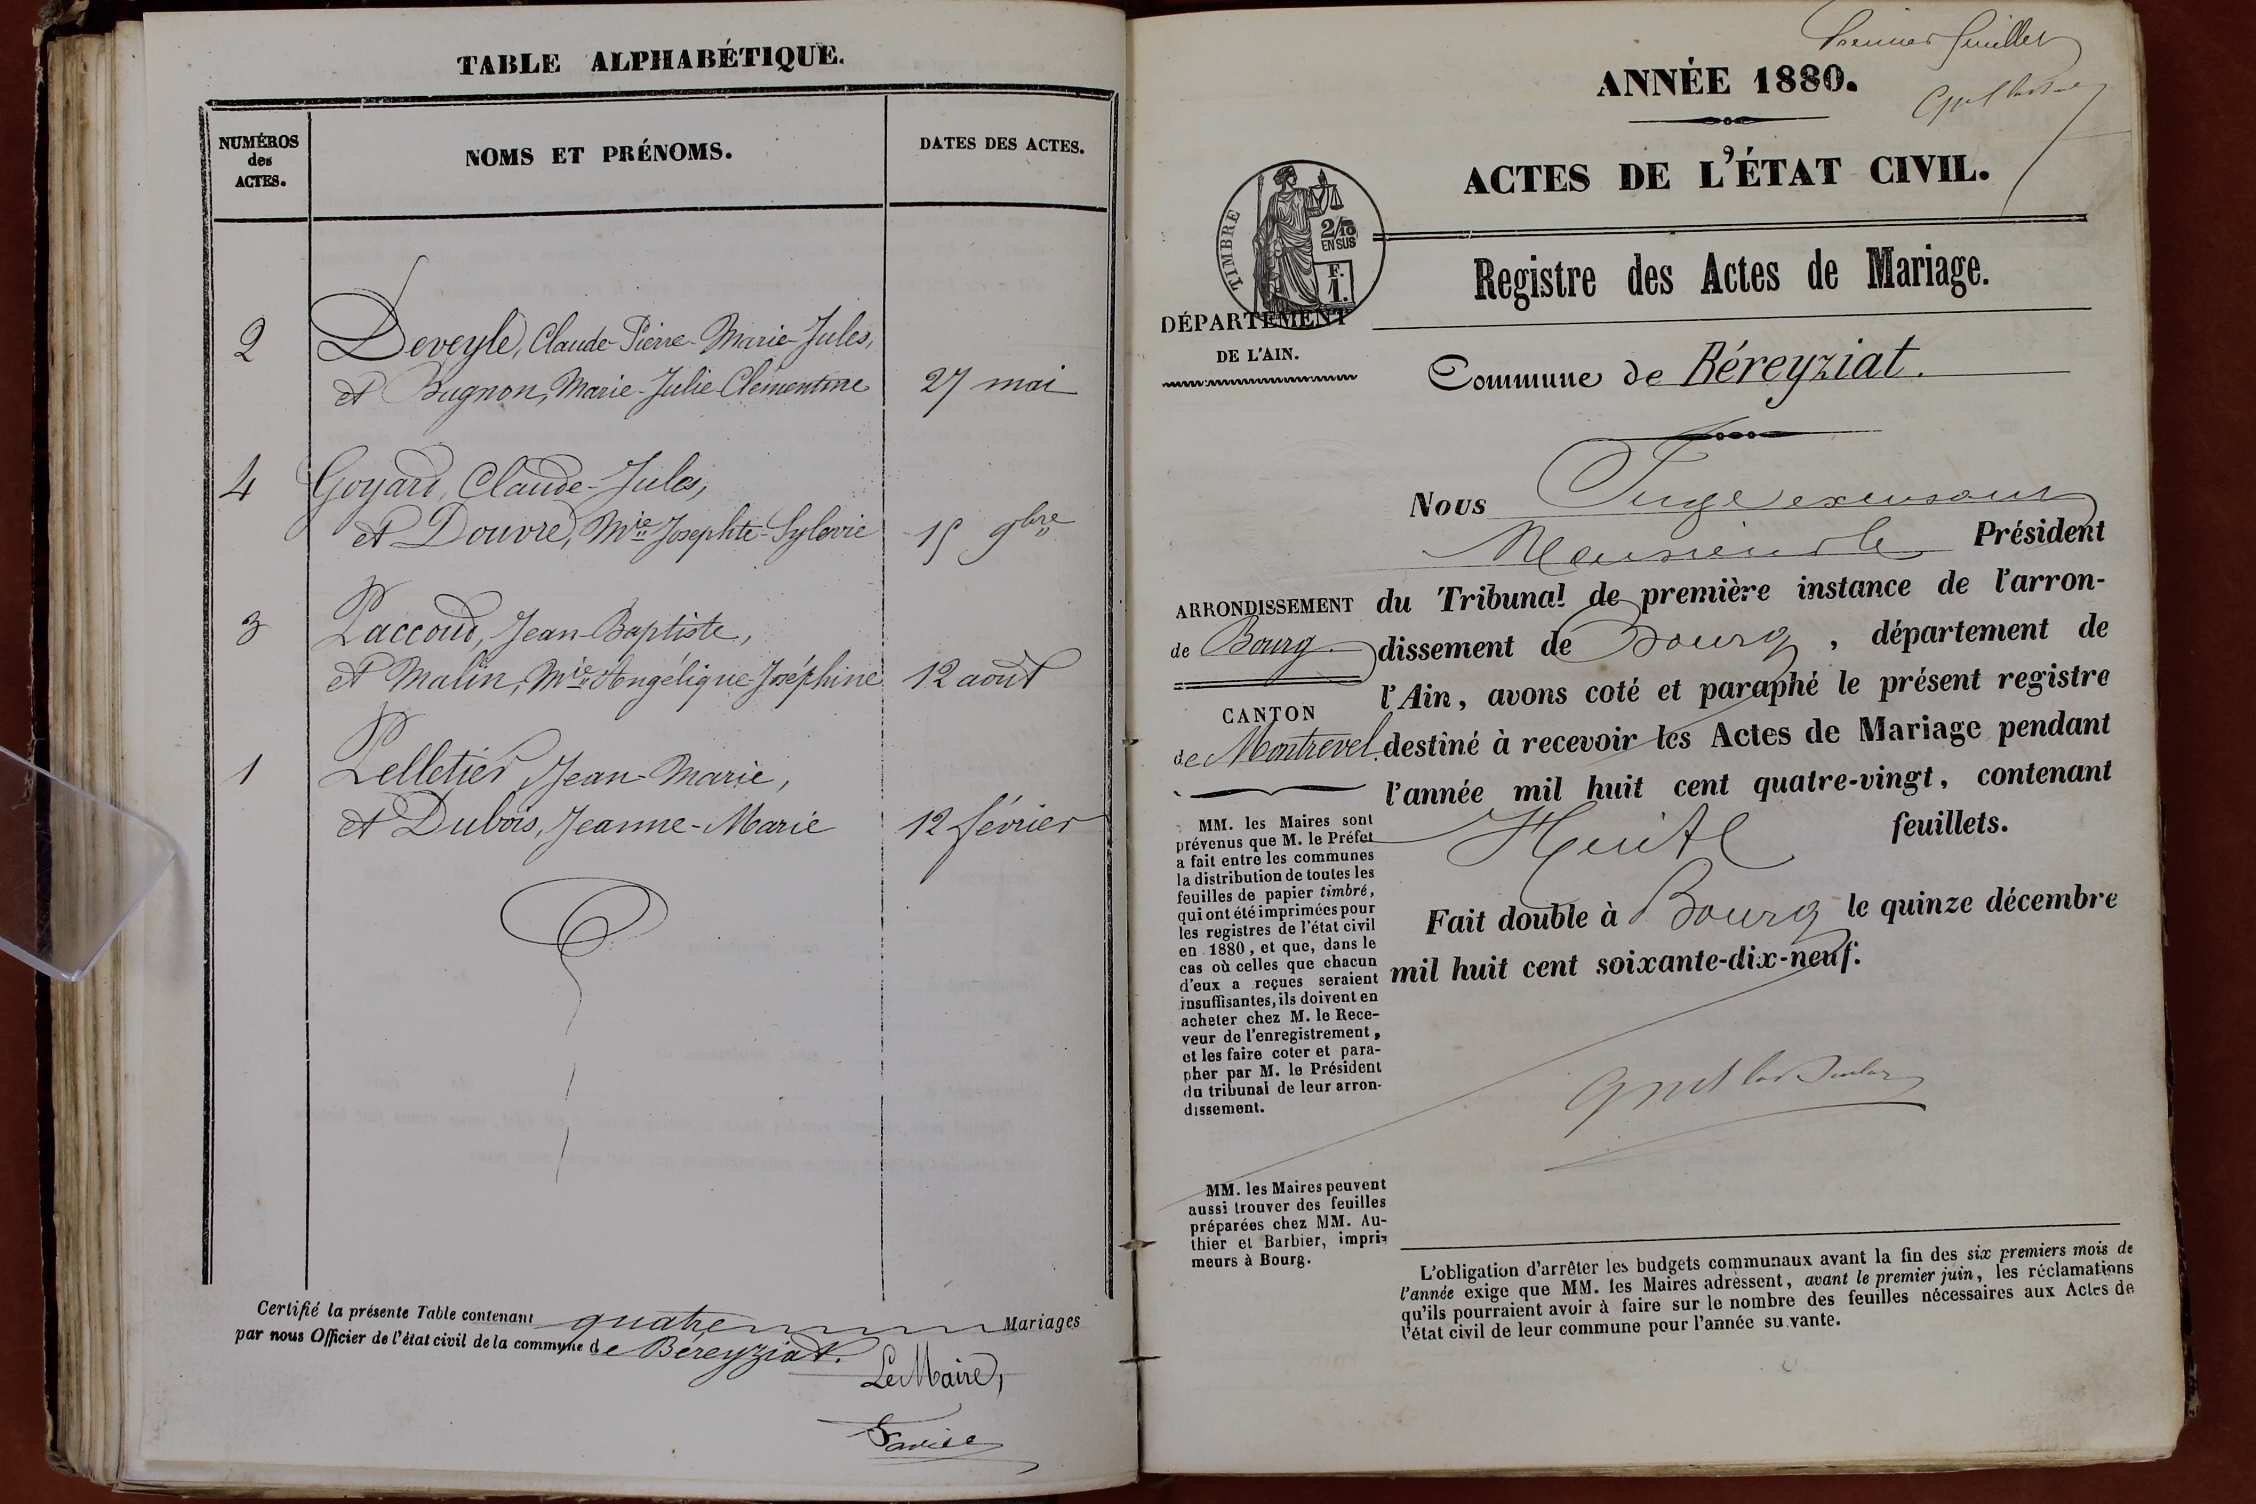 TABLE ALPHABÉTIQUE.
NUMÉROS
des
ACTES.
NOMS ET PRÉNOMS.
DATES DES ACTES.
2 Deveyle, Claude-Pierre-Marie-Jules,
et Bugnon, Marie-Julie-Clémentine 27 mai
4 Goyard, Claude-Jules,
et Douvre, Mie Josephte-Sylvie 15 9bre
3 Paccoud, Jean-Baptiste,
et Malin, Mie Angélique-Joséphine 12 août
1 Pelletier, Jean-Marie,
et Dubois, Jeanne-Marie 12 février
Certifié la présente Table contenant quatre Mariages
par nous Officier de l'état civil de la commune de Béreyziat.
Le Maire,
Premier feuillet
ANNÉE 1880.
ACTES DE L'ÉTAT CIVIL.
TIMBRE
2/10
EN SUS
F.
1.
Registre des Actes de Mariage.
DÉPARTEMENT
DE L'AIN.
Commune de Béreyziat.
Nous Juge excusant
Monsieur le Président
du Tribunal de première instance de l'arron-
dissement de Bourg, département de
l'Ain, avons coté et paraphé le présent registre
destiné à recevoir les Actes de Mariage pendant
l'année mil huit cent quatre-vingt, contenant
Huit feuillets.
Fait double à Bourg le quinze décembre
mil huit cent soixante-dix-neuf.
ARRONDISSEMENT
de Bourg
CANTON
de Montrevel.
MM. les Maires sont
prévenus que M. le Préfet
a fait entre les communes
la distribution de toutes les
feuilles de papier timbré,
qui ont été imprimées pour
les registres de l'état civil
en 1880, et que, dans le
cas où celles que chacun
d'eux a reçues seraient
insuffisantes, ils doivent en
acheter chez M. le Rece-
veur de l'enregistrement,
et les faire coter et para-
pher par M. le Président
du tribunal de leur arron-
dissement.
MM. les Maires peuvent
aussi trouver des feuilles
préparées chez MM. Au-
thier et Barbier, impri-
meurs à Bourg.
L'obligation d'arrêter les budgets communaux avant la fin des six premiers mois de
l'année exige que MM. les Maires adressent, avant le premier juin, les réclamations
qu'ils pourraient avoir à faire sur le nombre des feuilles nécessaires aux Actes de
l'état civil de leur commune pour l'année su vante.